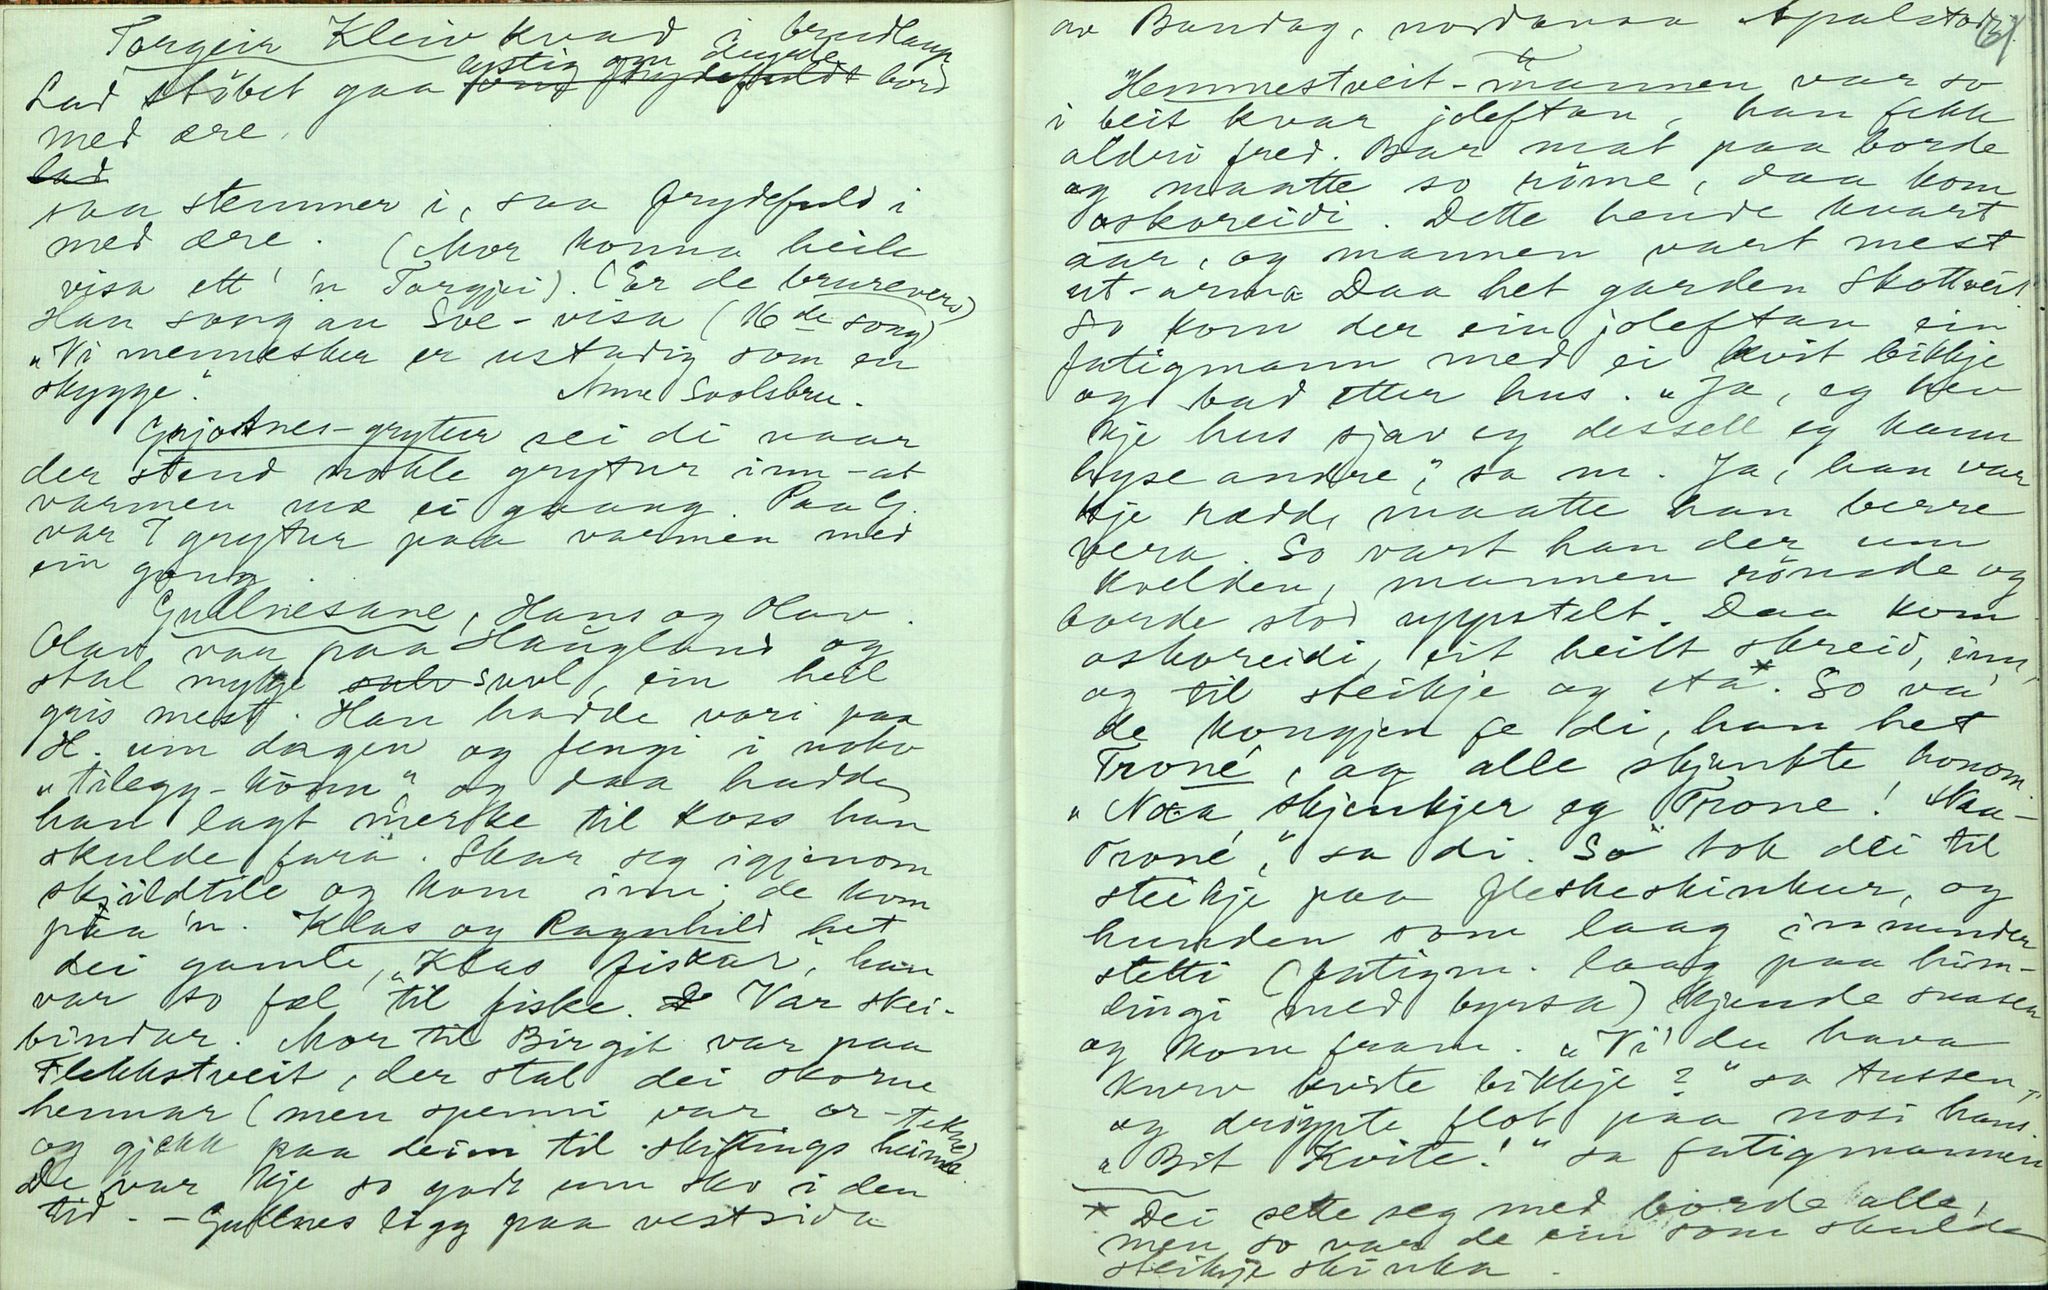 Torgeir Kleiv kvad i brudlaup
lystig gjen dugde
Lad støbet gaa fong frydefuldt bord
med ære.
lad
saa stemmer i, saa frydefuld i
med ære. (Mor konna heile
visa ett' 'n Torgjei). (Er de brurevers)
Han song än Sve-visa (16de song)
"Vi mennesker er ustadig som en
skygge." Anne Svolsbru.
Grjotnes-grytur sei di naar
der stend nokle grytur inn-at
varmen mæ ei gaang. Paa G.
var 7 grytur paa varmen med
ein gong.
Gullnesane, Hans og Olav.
Olav var paa Haugland og
stal mykje sulv suvl, ein heil
gris mest. Han hadde vori paa
H. um dagen og fengi i noko
"tilegg-konn" og daa hadde
han lagt merke til koss han
skulde fara. Skar seg igjenom
skjildtile og kom inn; de kom
paa 'n. Klas og Ragnhild het
dei gamle, "Klas fiskar", han
var so fæl til fiske. De Var skei-
bindar. Mor til Birgit var paa
Flekkstveit, der stal dei skorne
hennar (men spenni var or-tekne)
og gjekk paa deim til skiftings heime.
De var kje so godt um sko i den
tid. - Gullnes ligg paa vestsida
av Bandag, nordanaa Apalstad. 61
"Hemmestveit-mannen var so
i beit kvar joleftan, han fekk
aldri fred. Bar mat paa borde
og maatte so röme, daa kom
oskoreidi. Dette hende kvart
aar, og mannen vart mest
ut-arma. Daa het garden Skottveit.
So kom der ein joleftan ein
fatigmann med ei kvit bikkje
og bad etter hus. "Ja, eg hev
kje hus sjav eg dessell eg kann
hyse andre," sa m. Ja, han var
kje rædd, maatte han berre
vera. So vart han der um
kvelden, mannen römde og
borde stod uppstelt. Daa kom
oskoreidi, eit heilt skreid, inn,
og til steikje og eta*. So va'
de kongjen fe di, han het
Troné, og alle skjenkte honom.
"Naa skjenkjer eg Trone! Naa
Troné," sa di. So tok dei til
steikje paa fleskeskinkur, og
hunden som laag innunder
stetti (fatigm. laag paa him-
lingi med byrsa) kjende smaken
og kom fram. "Vi' du hava
kurv kvite bikkje?" sa tussen,
og dröypte flot paa nosi hans.
"Bit Kvite!" sa fatigmannen
* Dei sette seg med borde alle,
men so var de ein som skulde
steikje skinka.